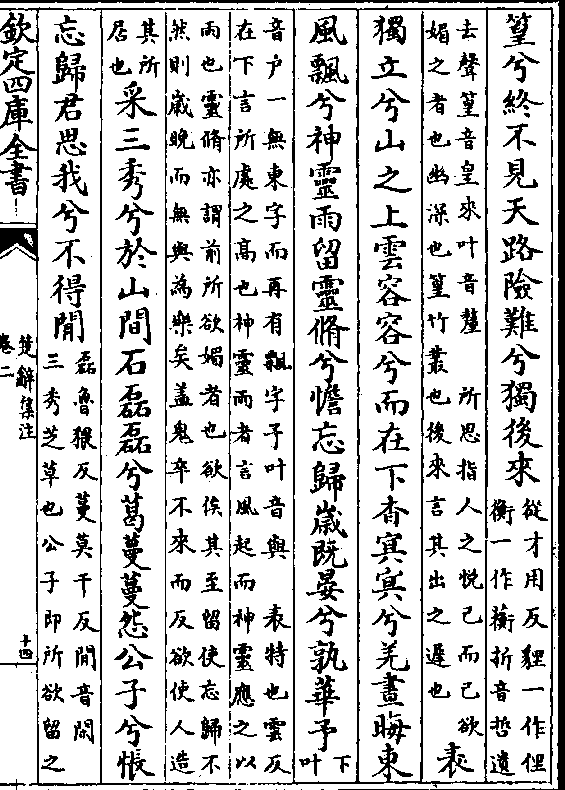 篁兮終不見天路險難兮獨後來
從才用反貍一作俚
衡一作蘅折音哲遺
去聲篁音皇來叶音釐 所思指人之悅己而己欲
媚之者也幽深也篁竹叢也後來言其出之遲也
表
獨立兮山之上雲容容兮而在下杳冥冥兮羌晝晦東
風飄兮神靈雨留靈脩兮憺忘歸歲既晏兮孰華予
下
叶
音户一無東字而再有飄字予叶音與 表特也雲反
在下言所處之高也神靈雨者言風起而神靈應之以
雨也靈脩亦謂前所欲媚者也欲俟其至留使忘歸不
然則歲晚而無與為樂矣盖鬼卒不來而反欲使人造
其所
居也
采三秀兮於山間石磊磊兮葛蔓蔓怨公子兮悵
忘歸君思我兮不得閒
磊魯猥反蔓莫干反閒音閑
三秀芝草也公子即所欲留之
欽定四庫全書
楚辭集注
卷二
十四